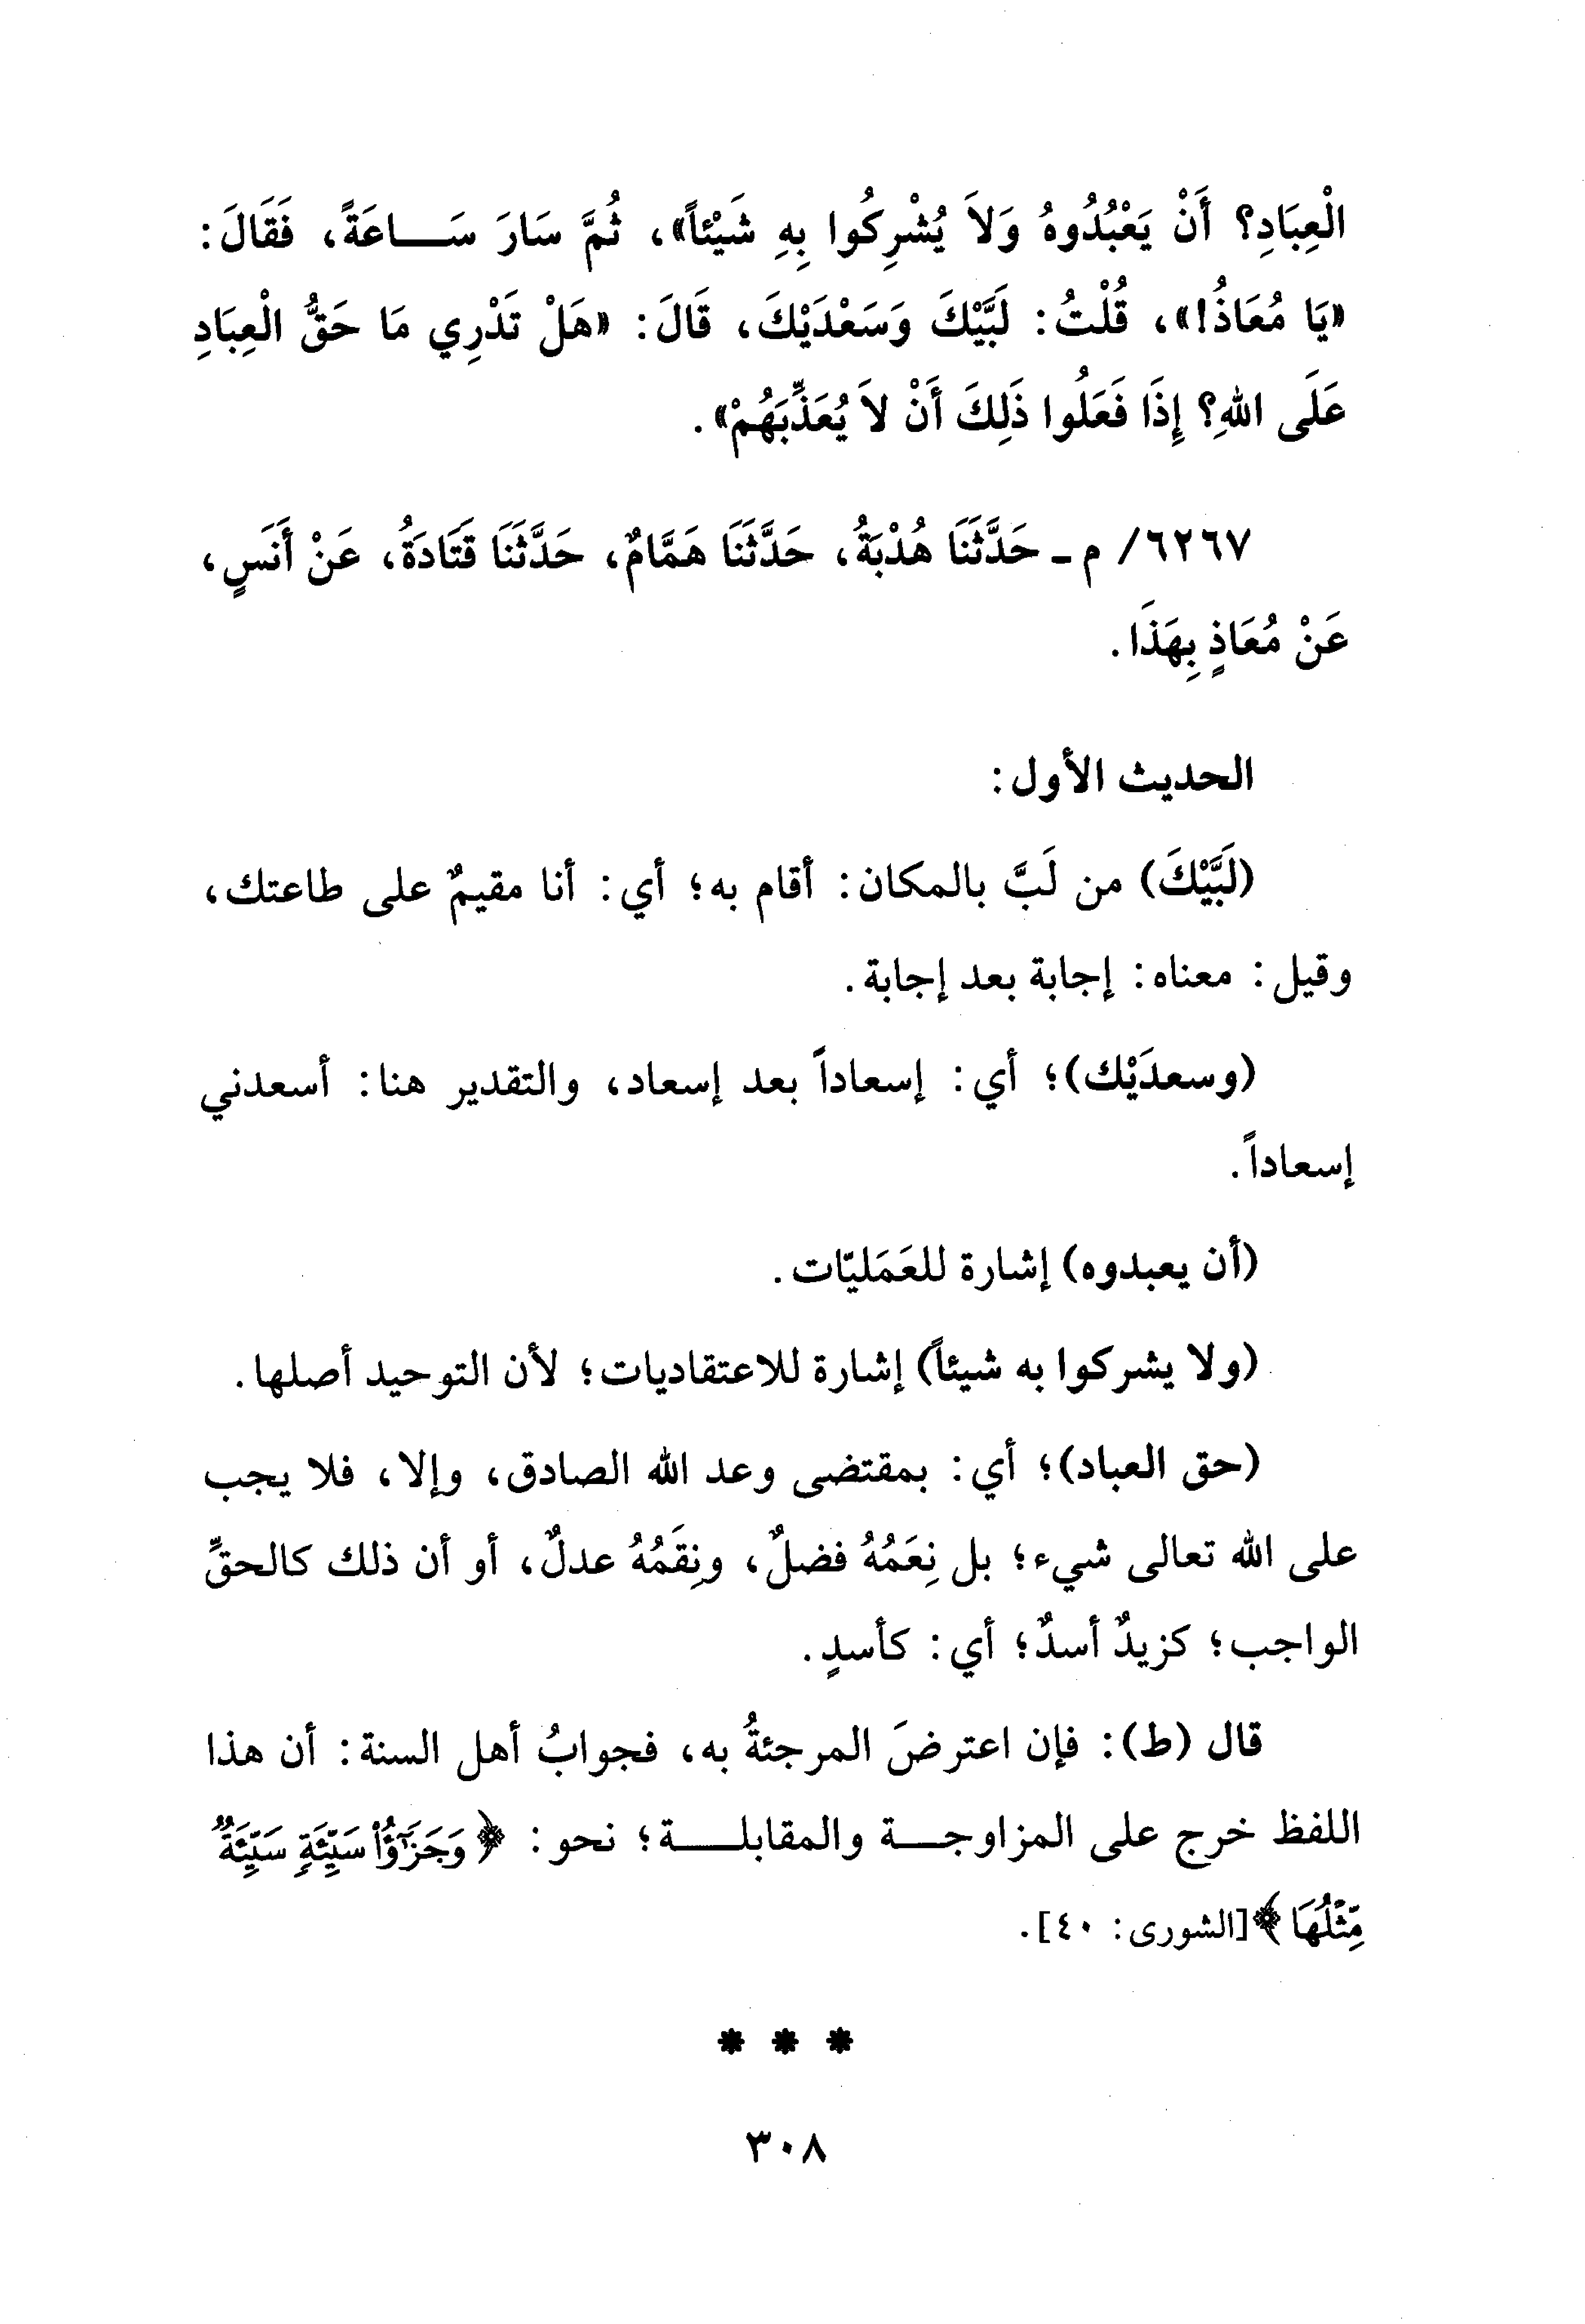 الْعِبَادِ؟ أَنْ يَعْبُدُوهُ وَلاَ يُشْرِكُوا بِهِ شَيْئاً»، ثُمَّ سَارَ سَـــاعَةً، فَقَالَ:
«يَا مُعَاذُ!»، قُلْتُ: لَبَّيْكَ وَسَعْدَيْكَ، قَالَ: «هَلْ تَدْرِي مَا حَقُّ الْعِبَادِ
عَلَى اللهِ؟ إِذَا فَعَلُوا ذَلِكَ أَنْ لاَ يُعَذِّبَهُمْ».
٦٢٦٧/ م ـ حَدَّثَنَا هُدْبَةُ، حَدَّثَنَا هَمَّامٌ، حَدَّثَنَا قَتَادَةُ، عَنْ أَنَسٍ،
عَنْ مُعَاذٍ بِهَذَا.
الحديث الأول:
(لَبَّيْكَ) من لَبَّ بالمكان: أقام به؛ أي: أنا مقيمٌ على طاعتك،
وقيل: معناه: إجابة بعد إجابة.
(وسعدَيْك)؛ أي: إسعاداً بعد إسعاد، والتقدير هنا: أسعدني
إسعاداً.
(أن يعبدوه) إشارة للعَمَليّات.
(ولا يشركوا به شيئاً) إشارة للاعتقاديات؛ لأن التوحيد أصلها.
(حق العباد)؛ أي: بمقتضى وعد الله الصادق، وإلا، فلا يجب
على الله تعالى شيء؛ بل نِعَمُهُ فضلٌ، ونِقَمُهُ عدلٌ، أو أن ذلك كالحقِّ
الواجب؛ كزيدٌ أسدٌ؛ أي: كأسدٍ.
قال (ط): فإن اعترضَ المرجئةُ به، فجوابُ أهل السنة: أن هذا
اللفظ خرج على المزاوجـــة والمقابلـــــة؛ نحو: ﴿وَجَزَٰٓؤُاْ سَيِّئَةٍ سَيِّئَةٌ
مِّثْلُهَا﴾ [الشورى: ٤٠].
* * *
٣٠٨